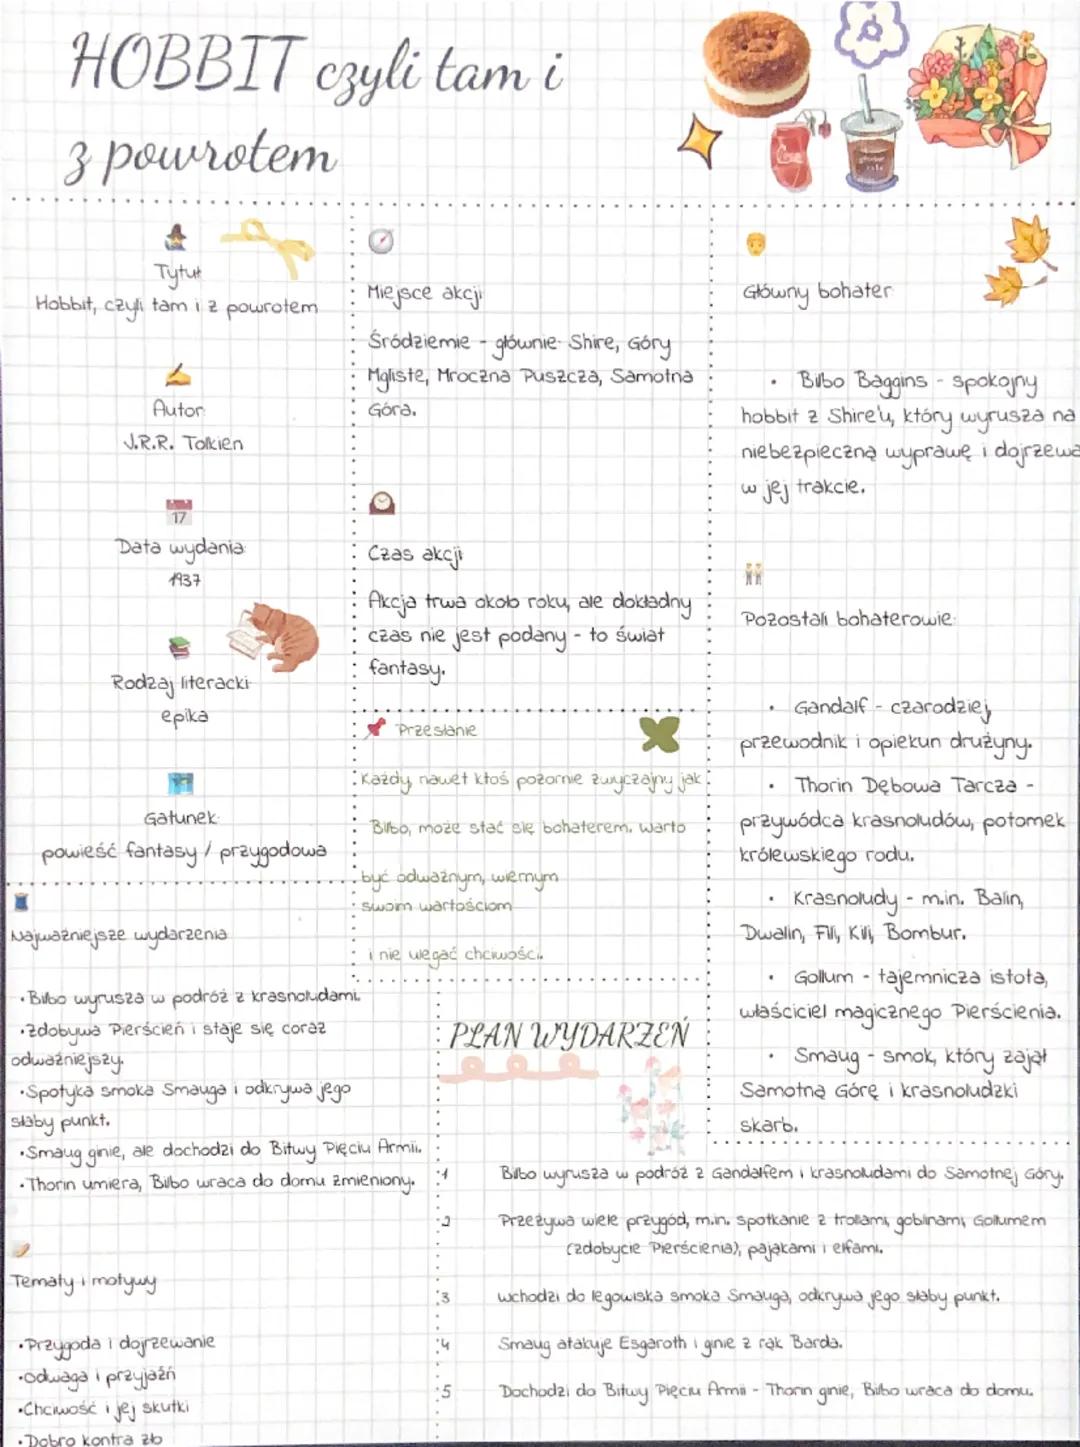 HOBBIT czyli tam i
z powrotem
Tytuł
Hobbit, czyli tam i z powrotem
Autor:
J.R.R. Tolkien
17
Data wydania:
1937
Rodzaj literacki:
epika
Gatunek:
powieść fantasy / przygodowa
Miejsce akcji
Śródziemie - głównie: Shire, Góry
Mgliste, Mroczna Puszcza, Samotna
Góra.
Czas akcji
Akcja trwa około roku, ale dokładny
czas nie jest podany - to świat
fantasy.
Przesłanie
Każdy, nawet ktoś pozornie zwyczajny jak
Bilbo, może stać się bohaterem. Warto
być odważnym, wiernym
swoim wartościom
i nie ulegać chciwości.
Główny bohater
• Bilbo Baggins - spokojny
hobbit z Shire'u, który wyrusza na
niebezpieczną wyprawę i dojrzewa
w jej trakcie.
Pozostali bohaterowie:
• Gandalf - czarodziej,
przewodnik i opiekun drużyny.
• Thorin Dębowa Tarcza -
przywódca krasnoludów, potomek
królewskiego rodu.
• Krasnoludy - m.in. Balin,
Dwalin, Fili, Kili, Bombur.
• Gollum - tajemnicza istota,
właściciel magicznego Pierścienia.
• Smaug - smok, który zajął
Samotną Górę i krasnoludzki
skarb.
Najważniejsze wydarzenia
•Bilbo wyrusza w podróż z krasnoludami.
•Zdobywa Pierścień i staje się coraz
odważniejszy.
•Spotyka smoka Smauga i odkrywa jego
słaby punkt.
•Smaug ginie, ale dochodzi do Bitwy Pięciu Armii.
•Thorin umiera, Bilbo wraca do domu zmieniony.
Tematy i motywy
•Przygoda i dojrzewanie
•Odwaga i przyjaźń
•Chciwość i jej skutki
•Dobro kontra zło
PLAN WYDARZEŃ
1 Bilbo wyrusza w podróż z Gandalfem i krasnoludami do Samotnej Góry.
2 Przeżywa wiele przygód, m.in. spotkanie z trollami, goblinami, Gollumem
(zdobycie Pierścienia), pająkami i elfami.
3 Wchodzi do legowiska smoka Smauga, odkrywa jego słaby punkt.
4 Smaug atakuje Esgaroth i ginie z rąk Barda.
5 Dochodzi do Bitwy Pięciu Armii - Thorin ginie, Bilbo wraca do domu.